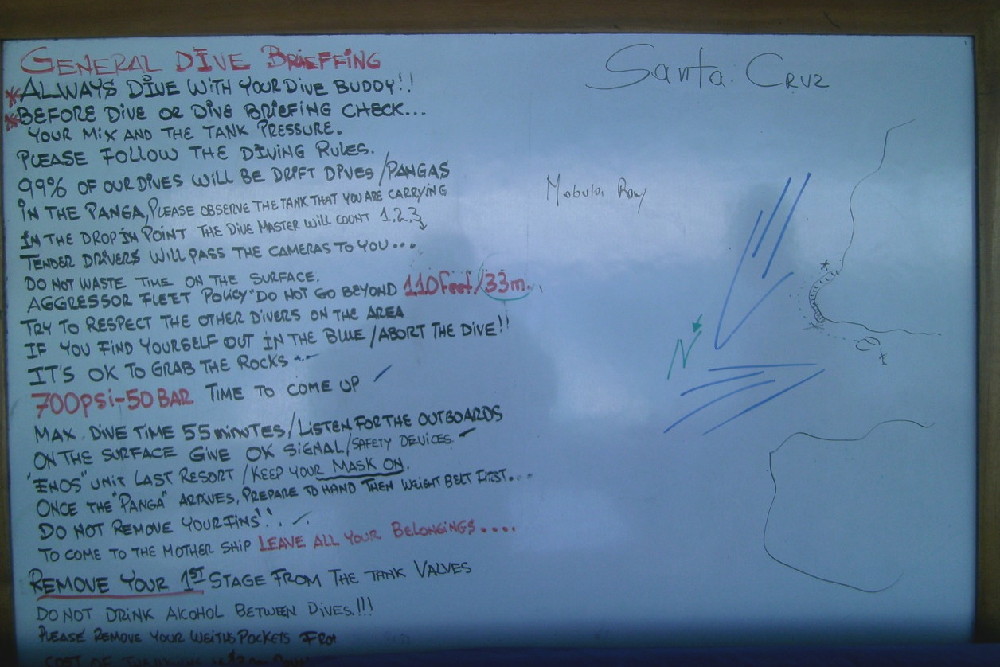 GENERAL DIVE BRIEFFING
*ALWAYS DIVE WITH YOUR DIVE BUDDY!!
*BEFORE DIVE OR DIVE BRIEFING CHECK...
YOUR MIX AND THE TANK PRESSURE.
PLEASE FOLLOW THE DIVING RULES.
99% OF OUR DIVES WILL BE DRIFT DIVES/PANGAS
IN THE PANGA, PLEASE OBSERVE THE TANK THAT YOU ARE CARRYING
IN THE DROP IN POINT THE DIVE MASTER WILL COUNT 1.2.3
TENDER DRIVERS WILL PASS THE CAMERAS TO YOU...
DO NOT WASTE TIME ON THE SURFACE.
AGGRESSOR FLEET POLICY DO NOT GO BEYOND 110Feet/33m.
TRY TO RESPECT THE OTHER DIVERS ON THE AREA
IF YOU FIND YOURSELF OUT IN THE BLUE/ABORT THE DIVE!!
IT'S OK TO GRAB THE ROCKS...
700psi-50BAR TIME TO COME UP
MAX. DIVE TIME 55 minutes/LISTEN FOR THE OUTBOARDS
ON THE SURFACE GIVE OK SIGNAL/SAFETY DEVICES
"ENOS" UNIT LAST RESORT/KEEP YOUR MASK ON.
ONCE THE "PANGA" ARRIVES, PREPARE TO HAND THEM WEIGHT BELT FIRST...
DO NOT REMOVE YOUR FINS!!.
TO COME TO THE MOTHER SHIP LEAVE ALL YOUR BELONGINGS....
REMOVE YOUR 1ST STAGE FROM THE TANK VALVES
DO NOT DRINK ALCOHOL BETWEEN DIVES!!!
PLEASE REMOVE YOUR WEITHS POCKETS FROM
Santa Cruz
Mobula Ray
N